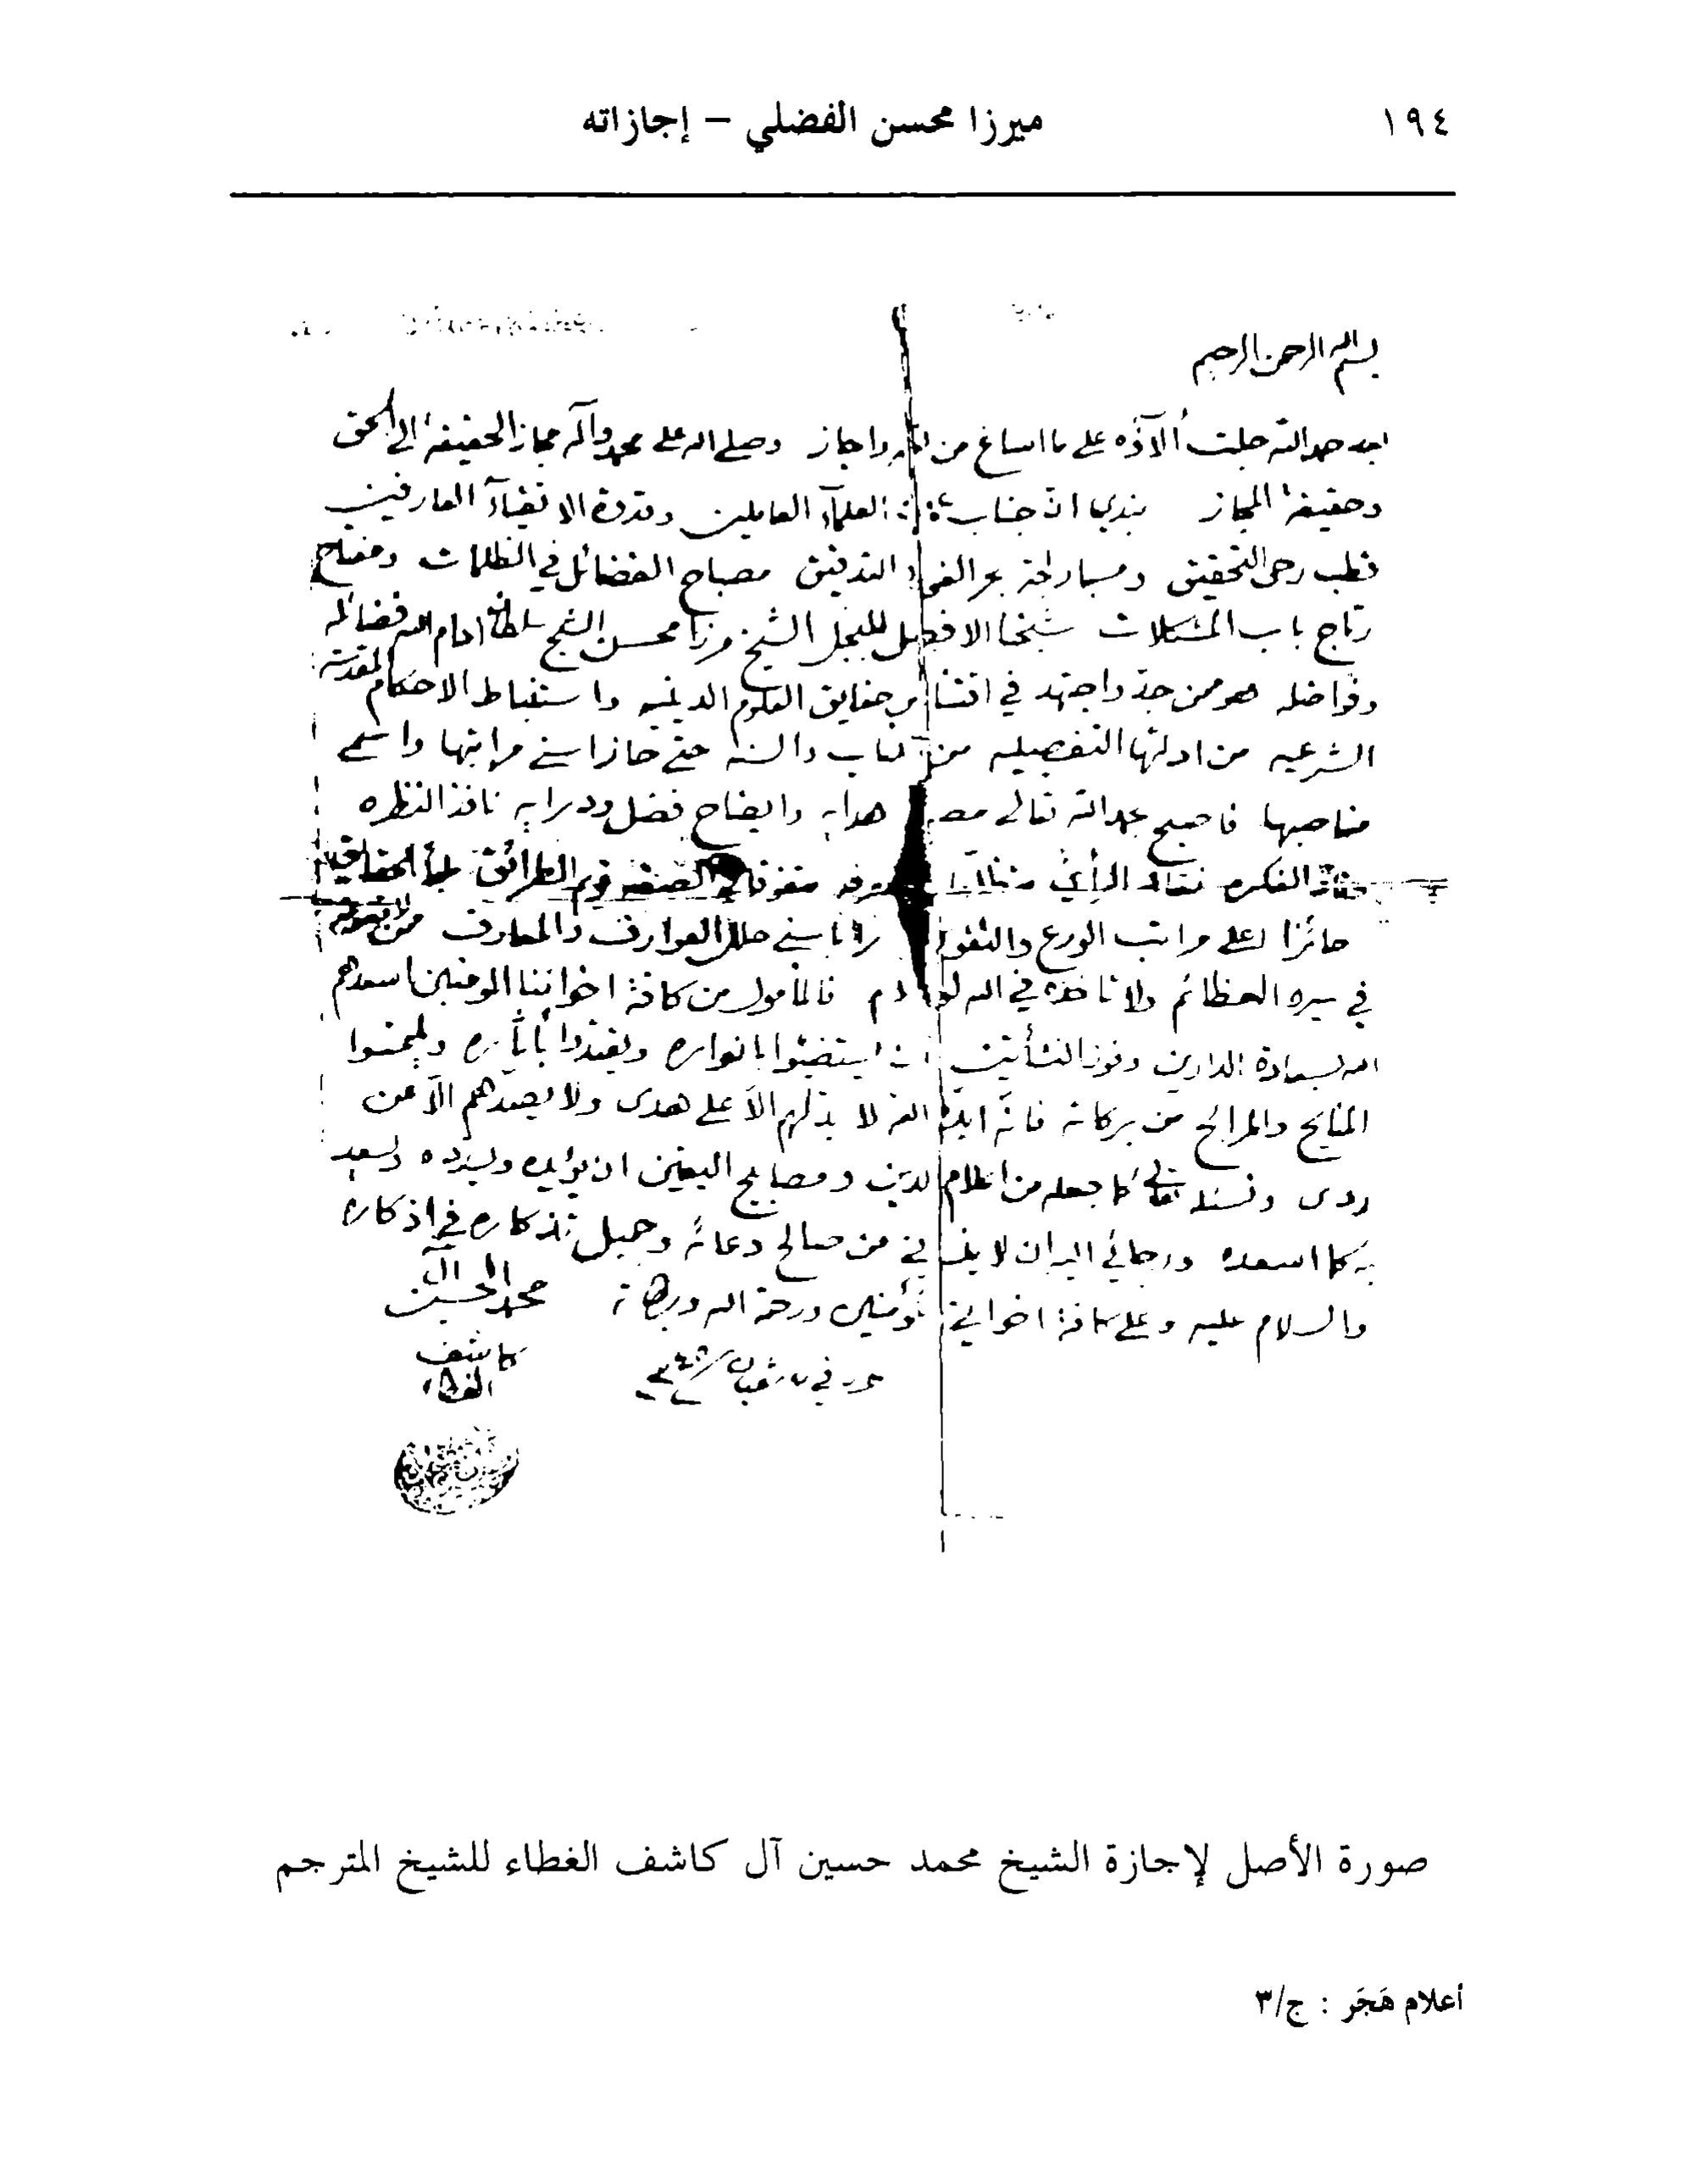 ١٩٤
ميرزا محسن الفضلي – إجازاته
بسم الله الرحمن الرحيم
بعد حمد الله جلت آلاؤه على ما اساغ من واجاز وصلى الله على محمد وآله مجاز الحقيقة الى الحق
وحقيقة المجاز ان جناب العلماء العاملين وقدوة الاتقياء العارفين
قطب رحى التحقيق التدقيق مصباح الفضائل في الظلمات ومفتاح
رتاج باب المشكلات شيخنا الافضل المبجل الشيخ مرزا محسن الشيخ سلطان ادام الله فضائله
وفواضله هو ممن جد واجتهد في حقايق العلوم الدينيه واستنباط الاحكام
المقدسة
الشرعيه من ادلتها التفصيليه من كتاب والسنه حتى حاز اسنى مراتبها واسمى
مناصبها فاصبح بحمد الله تعالى هدايه وايضاح فضل ودرايه نافذ النظره
الفكره نقاد الرأي الطرائق الحقايق
حائزا اعلى مراتب الورع والتقوى حلل العوارف والمعارف
في سيره العظائم ولا تاخذه في الله فالمأمول من كافة اخواننا المؤمنين اسعدهم
الله بسعادة الدارين وفوز النشأتين ان يستضيئوا بانواره ويقتدوا بآثاره
المنايح من بركاته فانه ايده الله لا يدلهم الا على هدى ولا يصدهم الا عن
ردى ونسئله تعالى كما جعله من اعلام الدين ومصابيح اليقين ان يؤيده ويسدده ويسعد
به كما اسعده ورجائي اليه ان لا من صالح دعائه وجميل تذكاره في اذكاره
والسلام عليه وعلى كافة اخواني المؤمنين ورحمة الله وبركاته
محمد الحسين آل
كاشف
الغطاء
في شعبان
صورة الأصل لإجازة الشيخ محمد حسين آل كاشف الغطاء للشيخ المترجم
أعلام هَجَر : ج/٣